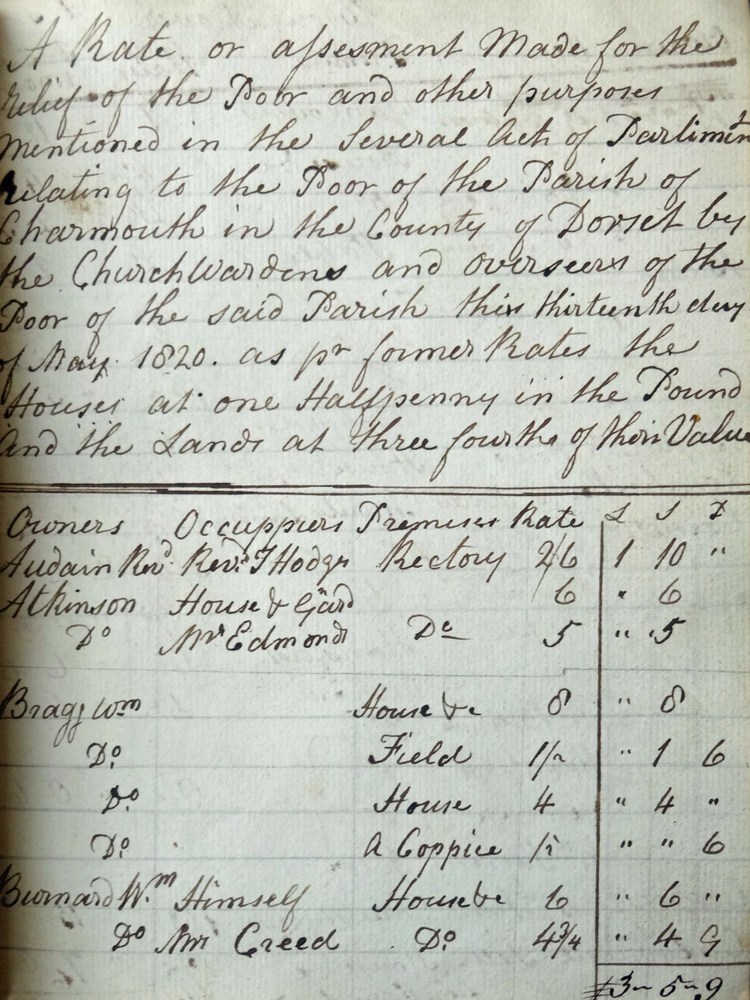 A Rate or assesment Made for the
relief of the Poor and other purposes
mentioned in the Several Acts of Parlimint
relating to the Poor of the Parish of
Charmouth in the County of Dorset by
the ChurchWardens and overseers of the
Poor of the said Parish this thirteenth day
of May 1820. as pr former Rates the
Houses at one Halfpenny in the Pound
And the Lands at three fourths of their Value
Owners Occuppiers Premises Rate £ S D
Audain Revd Revd J Hodges Rectory 2/6 1 10 "
Atkinson House & Gard 6 " 6
Do Mrs Edmonds Do 5 " 5
Bragg Wm House &c 8 " 8
Do Field 1/2 " 1 6
Do House 4 " 4 "
Do A Coppice /2 " " 6
Burnard Wm Himself House &c 6 " 6 "
Do Mrs Creed Do 4 3/4 " 4 9
£3 " 5 " 9